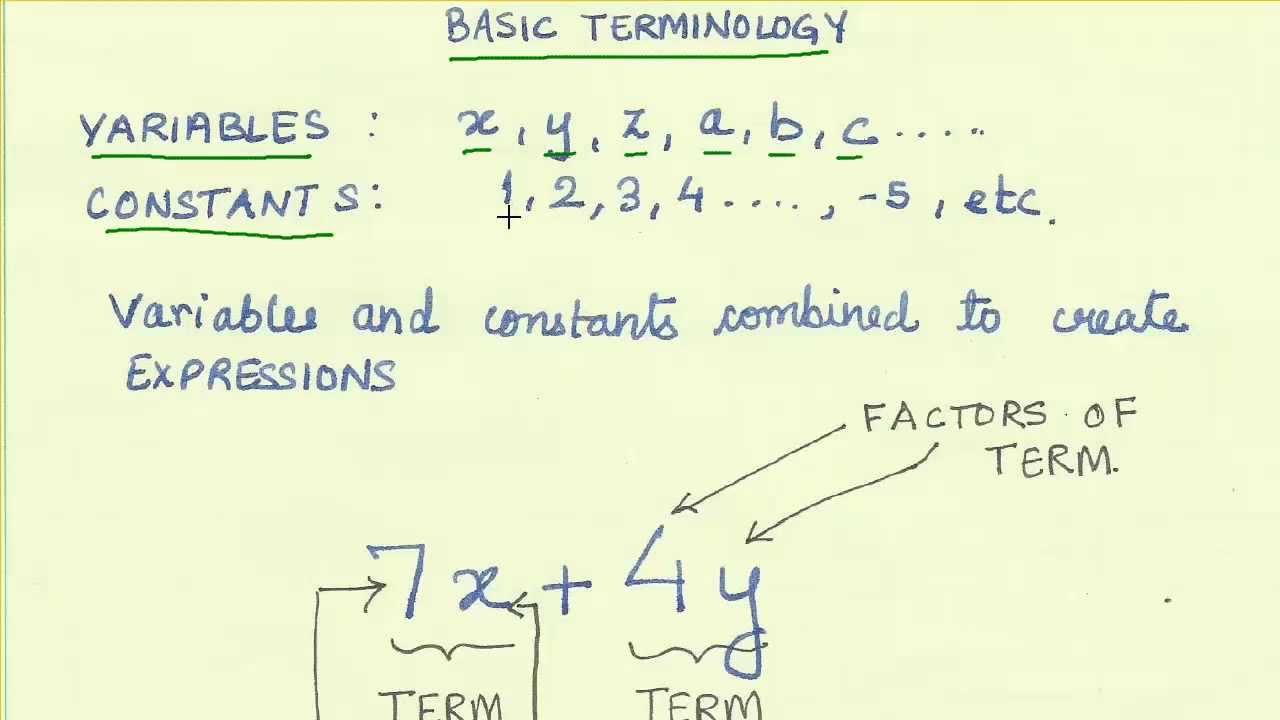 BASIC TERMINOLOGY
VARIABLES : x, y, z, a, b, c .....
CONSTANTS : 1, 2, 3, 4 ...., -5, etc.
Variables and constants combined to create
EXPRESSIONS
FACTORS OF
TERM.
7x + 4y
TERM TERM